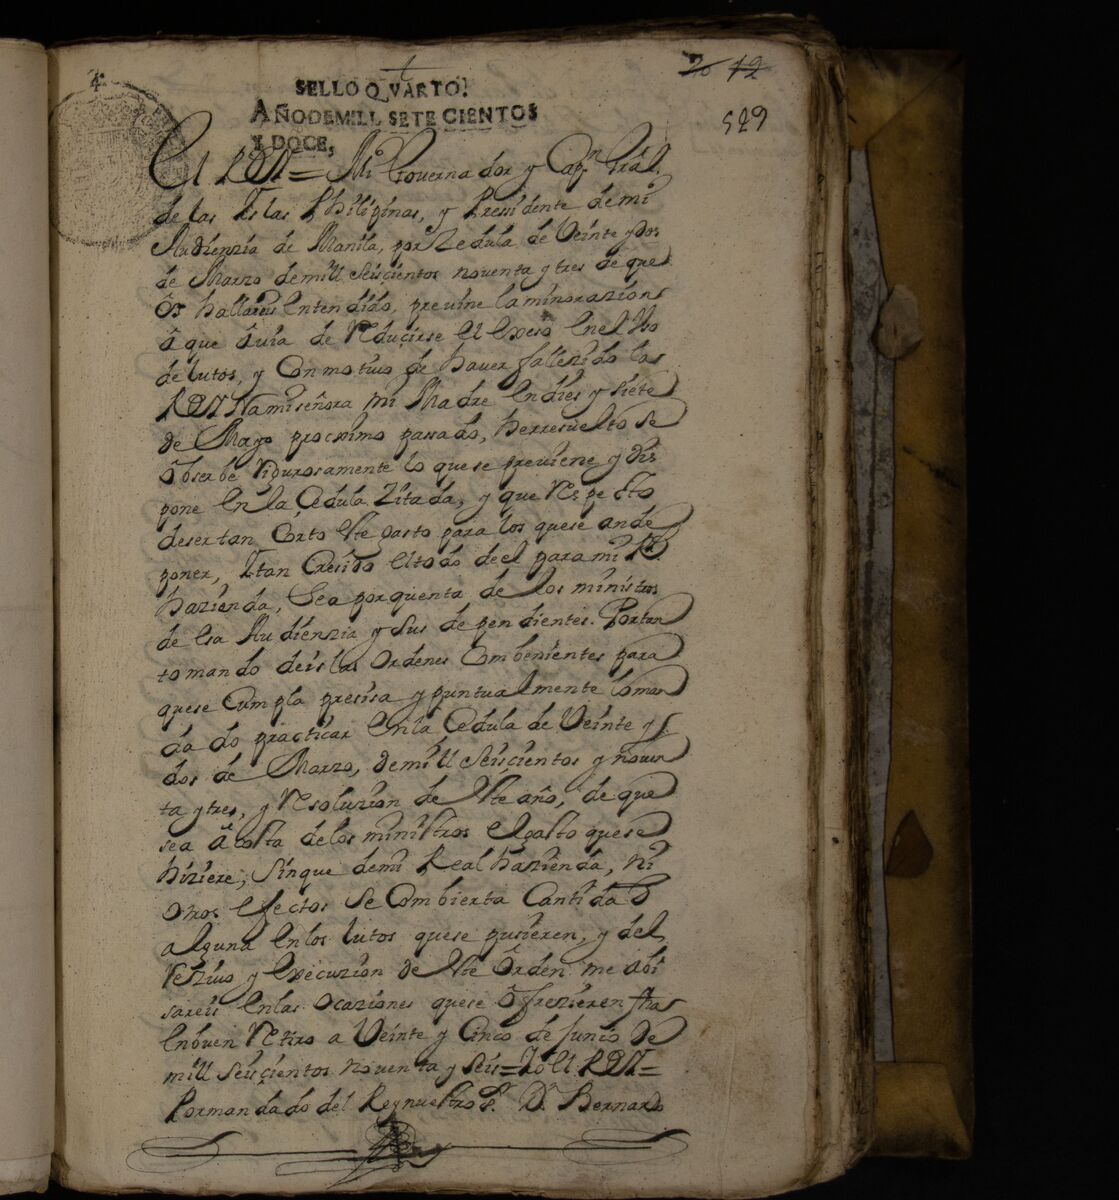 4º
20 12
529
SELLO QVARTO,
AÑO DE MILL SETECIENTOS
Y DOCE,
El REY= Mi Governador y Capn Grãl.
de las Islas Philipinas, y Pressidente de mi
Audienzia de Manila, por Zedula de Veinte y dos
de Marzo de mill Seisçientos noventa y tres de que
os hallareis entendido, previne la minorazion
â que âvia de Reduçirse el exceso en el Uso
de lutos, y con motivo de haver fallezido la
REYNA mi señora mi Madre en dies y siete
de Mayo procximo passado, he rresuelto se
observe rigurosamente lo que se previene y dis
pone en la Çedula Zitada, y que Respecto
de ser tan Corto este gasto para los que se an de
poner, Y tan Cresido el todo de el para mi Rl
hazienda, Sea por quenta de los ministros
de esa Audienzia y sus dependientes. Portan
to mando deis las ordenes Combenientes para
que se Cumpla presisa y puntualmente lo man
dado practicar en la Cedula de Veinte y
dos de Marzo, de mill Seisçientos y noven
ta y tres, y Resoluzion de este año, de que
sea â costa de los ministros el gasto que se
hiziere, sin que de mi Real hazienda, ni
otros efectos se Combierta Cantidad
alguna en los lutos que se pusieren, y del
Reszivo y execuzion de este orden me abi
sareis en las ocaziones que se ôfrezieren fha
en buen Retiro a Veinte y Cinco de Junio de
mill Seisçientos noventa y seis= Yo el REY=
Por mandado del Rey nuestro Sr. Dn Bernardo